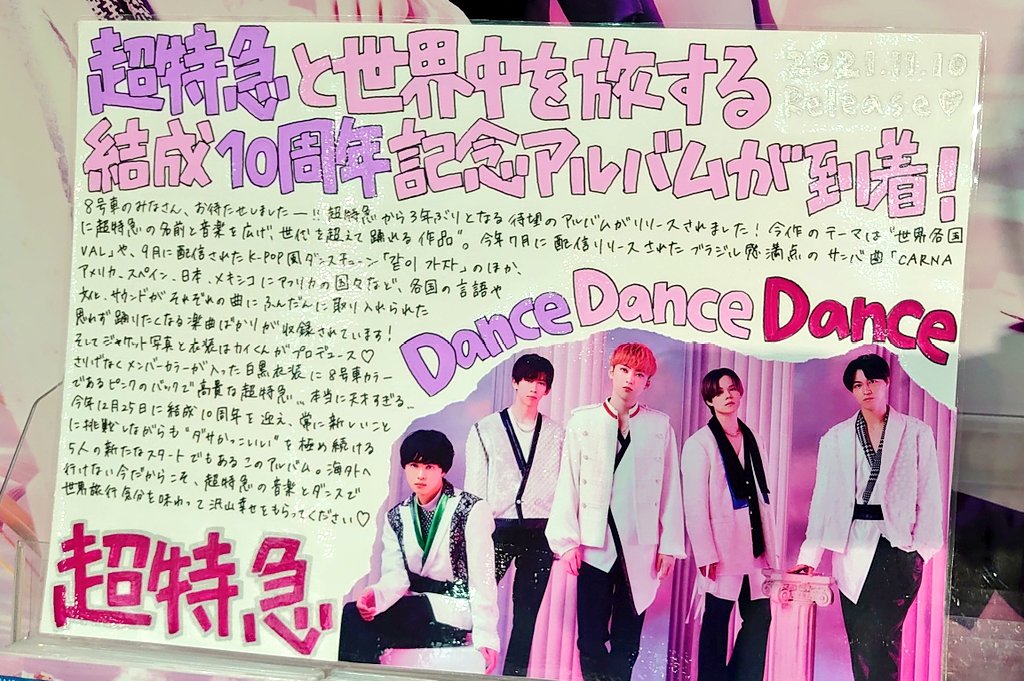 超特急と世界中を旅する
2021.11.10
Release♡
結成10周年記念アルバムが到着!
8号車のみなさん、お待たせしましたー!! 超特急から3年ぶりとなる待望のアルバムがリリースされました!今作のテーマは"世界各国
に超特急の名前と音楽を広げ、世代を超えて踊れる作品"。今年7月に配信リリースされたブラジル感満点のサンバ曲「CARNA
VAL」や、9月に配信されたK-POP風ダンスチューン「같이 가자」のほか、
アメリカ、スペイン、日本、メキシコにアフリカの国々など、各国の言語や
文化、サウンドがそれぞれの曲にふんだんに取り入れられた
思わず踊りたくなる楽曲ばかりが収録されています!
そしてジャケット写真と衣装はカイくんがプロデュース♡
さりげなくメンバーカラーが入った白黒衣装に8号車カラー
であるピンクのバックで高貴な超特急...本当に天才すぎる...
今年12月25日に結成10周年を迎え、常に新しいこと
に挑戦しながらも"ダサかっこいい"を極め続ける
5人の新たなスタートでもあるこのアルバム。海外へ
行けない今だからこそ、超特急の音楽とダンスで
世界旅行気分を味わって沢山幸せをもらってください♡
Dance Dance Dance
超特急